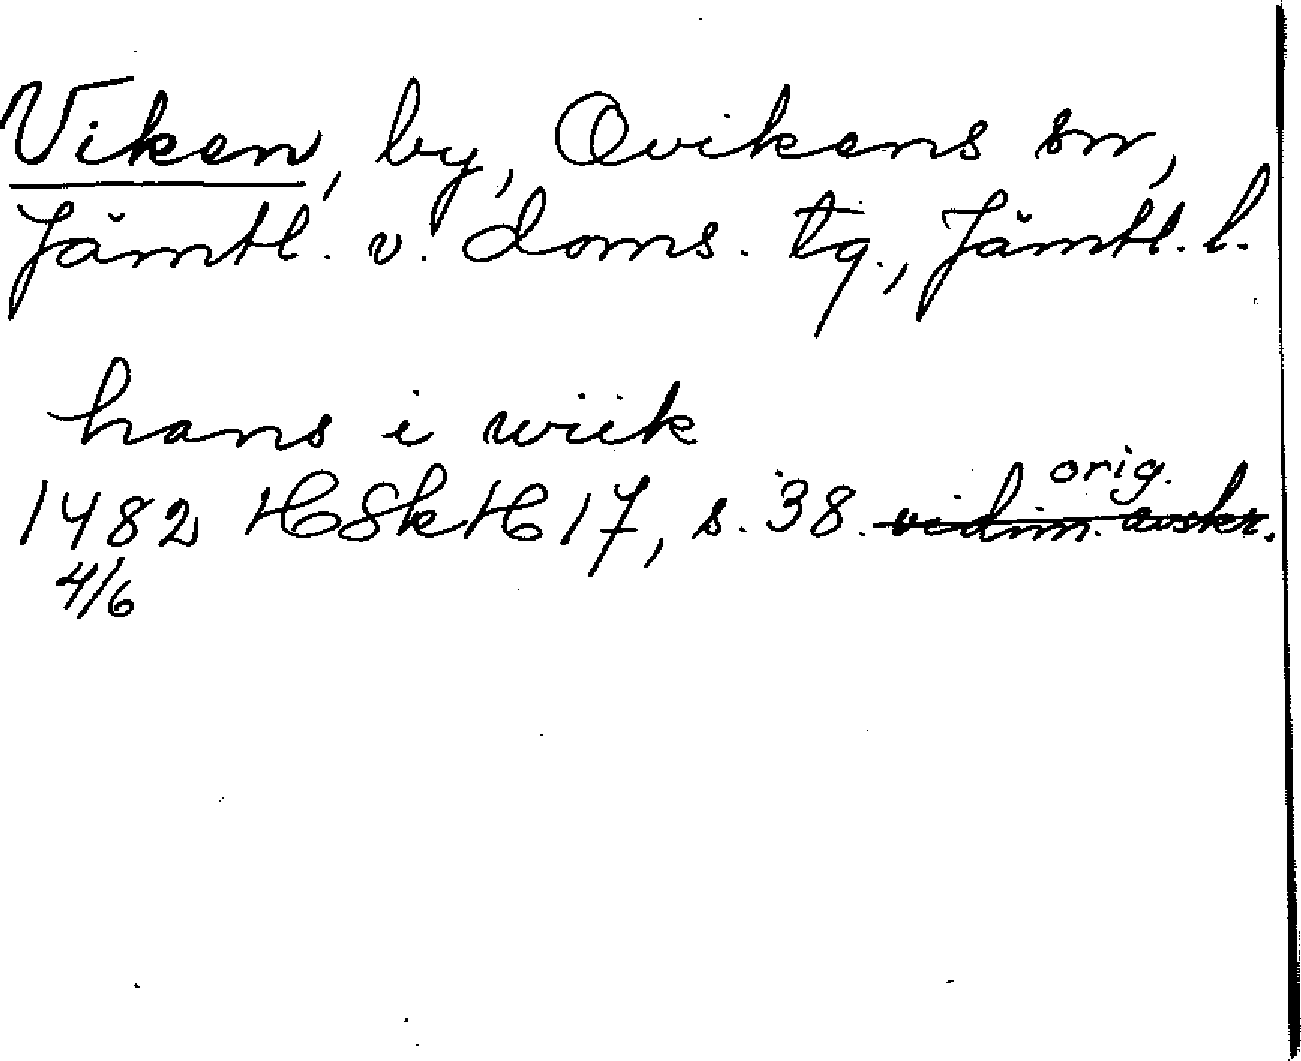 Viken, by, Ovikens sn,
Jämtl. v. doms. tg., Jämtl. l.
hans i wiik
orig.
1482 HSkH 17, s. 38. vidim. avskr.
4/6